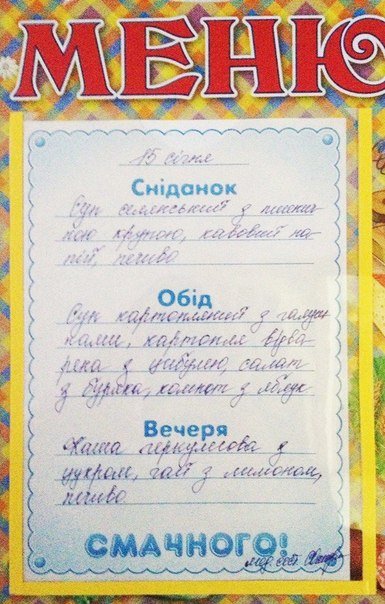 МЕНЮ
15 січня
Сніданок
Суп селянський з пшенич-
ною крупою, кавовий на-
пій, печиво
Обід
Суп картопляний з галуш-
ками, картопля відва-
рена з цибулею, салат
з буряка, компот з яблук
Вечеря
Каша геркулесова з
цукром, чай з лимоном,
печиво
СМАЧНОГО!
мед. сест.